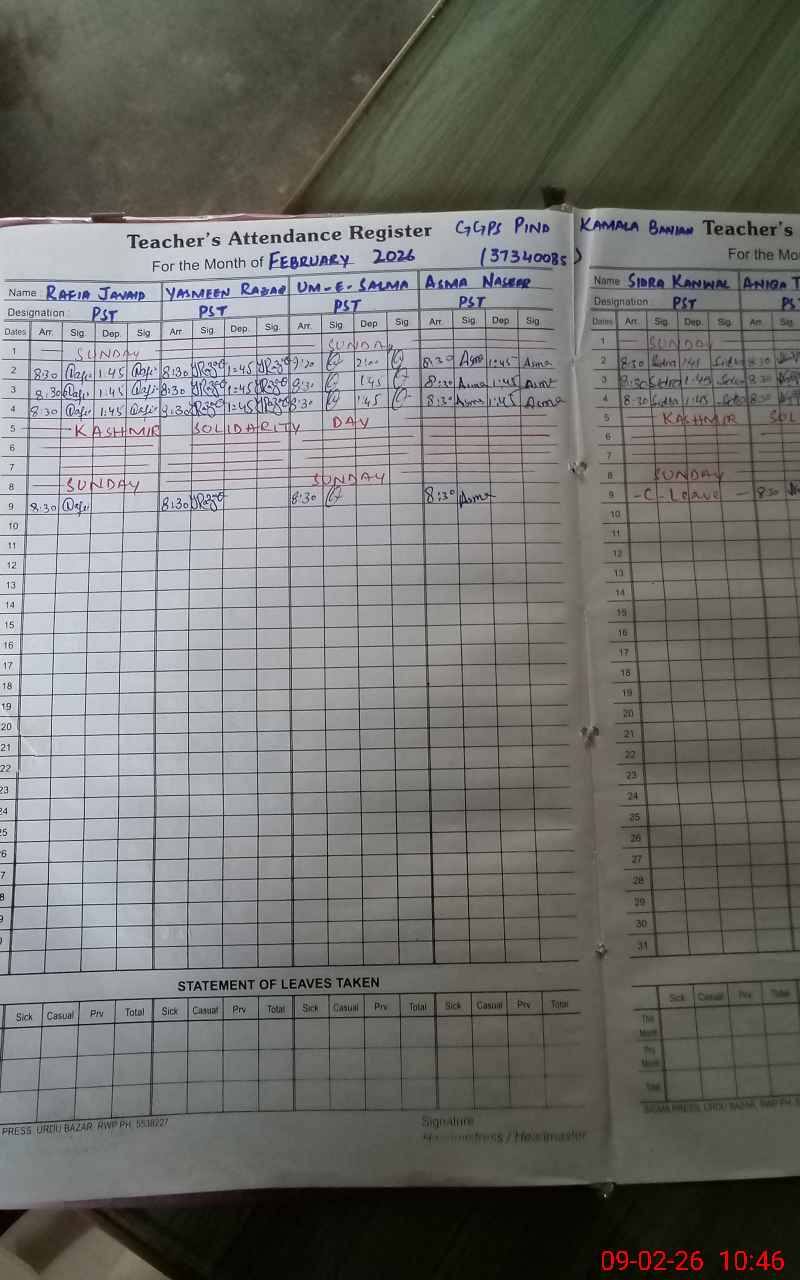 Teacher's Attendance Register GGPS PIND KAMALA BANIAN Teacher's
For the Month of FEBRUARY 2026 (37340085) For the Mo
Name : RAFIA JAVAID YASMEEN RAZAQ UM-E-SALMA ASMA NASEER Name SIDRA KANWAL ANIQA T
Designation : PST PST PST PST Designation : PST PS
Dates Arr. Sig. Dep. Sig. Arr. Sig. Dep. Sig. Arr. Sig. Dep. Sig. Arr. Sig. Dep Sig. Dates Arr. Sig. Dep. Sig. Arr. Sig.
1 SUNDAY SUNDAY 1 SUNDAY
2 8:30 1:45 8:30 1:45 2:00 8:30 Asma 1:45 Asma 2 8:30 Sidra 1:45 Sidra 8:30
3 8:30 1:45 8:30 1:45 8:30 1:45 8:30 Asma 1:45 Asma 3 8:30 Sidra 1:45 Sidra 8:30
4 8:30 1:45 8:30 1:45 8:30 1:45 8:30 Asma 1:45 Asma 4 8:30 Sidra 1:45 Sidra 8:30
5 KASHMIR SOLIDARITY DAY 5 KASHMIR SOL
6 6
7 7
8 SUNDAY SUNDAY 8 SUNDAY
9 8:30 8:30 8:30 8:30 Asma 9 - C - Leave - 8:30
10 10
11 11
12 12
13 13
14 14
15 15
16 16
17 17
18 18
19 19
20 20
21 21
22 22
23 23
24 24
25 25
6 26
7 27
8 28
9 29
30
31
STATEMENT OF LEAVES TAKEN
Sick Casual Prv Total Sick Casual Prv Total Sick Casual Prv Total Sick Casual Prv Total Sick Casual Prv Total
This Month
Prv Month
Total
PRESS, URDU BAZAR, RWP PH. 5538227 SIGMA PRESS, URDU BAZAR, RWP PH
Signature
Headmistress / Headmaster
09-02-26 10:46